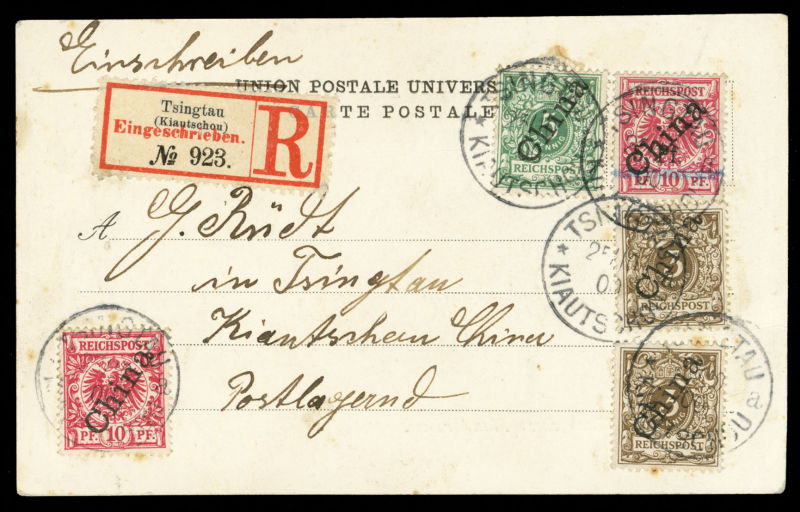 Einschreiben
UNION POSTALE UNIVERS
CARTE POSTALE
Tsingtau
(Kiautschou)
Eingeschrieben.
№ 923.
R
REICHSPOST
China
5
REICHSPOST
China
PF 10 PF
TSINGTAU
KIAUTSCHOU
A G. Rüdt
in Tsingtau
Kiautschou China
Postlagernd
China
3
REICHSPOST
REICHSPOST
China
PF. 10 PF.
China
3
REICHSPOST
TAU a